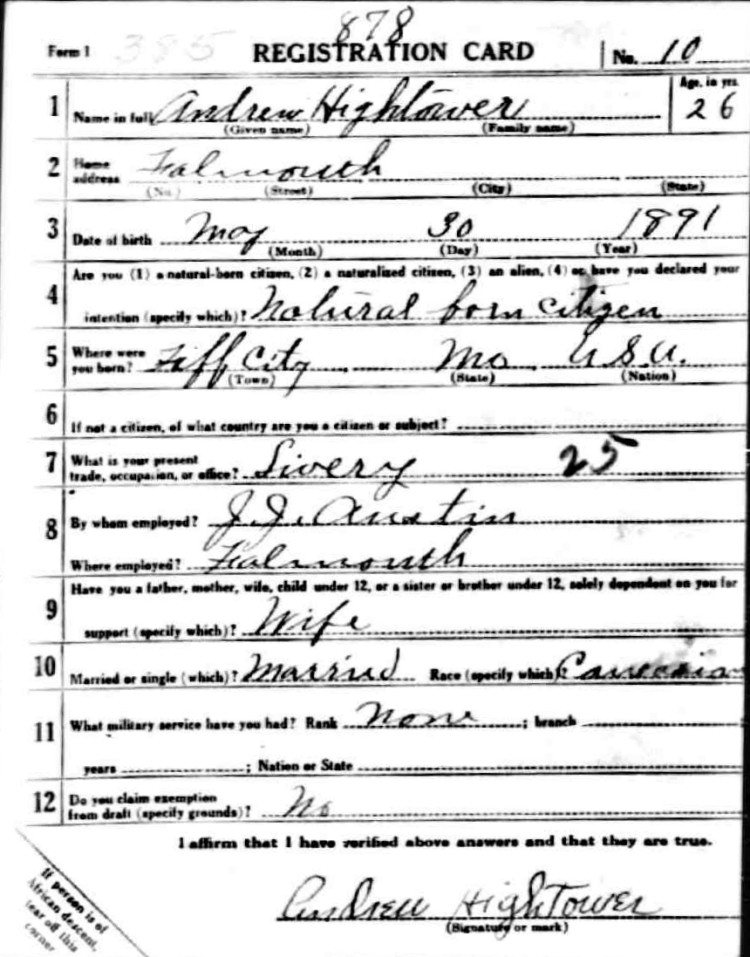 878
Form 1 385 REGISTRATION CARD No. 10
1 Name in full Andrew Hightower Age, in yrs. 26
(Given name) (Family name)
2 Home address Falmouth
(No.) (Street) (City) (State)
3 Date of birth May 30 1891
(Month) (Day) (Year)
4 Are you (1) a natural-born citizen, (2) a naturalized citizen, (3) an alien, (4) or have you declared your
intention (specify which)? Natural born citizen
5 Where were you born? Tiff City, Mo U S A.
(Town) (State) (Nation)
6 If not a citizen, of what country are you a citizen or subject?
7 What is your present trade, occupation, or office? Livery 25
8 By whom employed? J. J. Austin
Where employed? Falmouth
9 Have you a father, mother, wife, child under 12, or a sister or brother under 12, solely dependent on you for
support (specify which)? Wife
10 Married or single (which)? Married Race (specify which)? Caucasian
11 What military service have you had? Rank None ; branch
years ; Nation or State
12 Do you claim exemption from draft (specify grounds)? No
I affirm that I have verified above answers and that they are true.
Andrew HighTower
(Signature or mark)
If person is of
African descent,
tear off this
corner